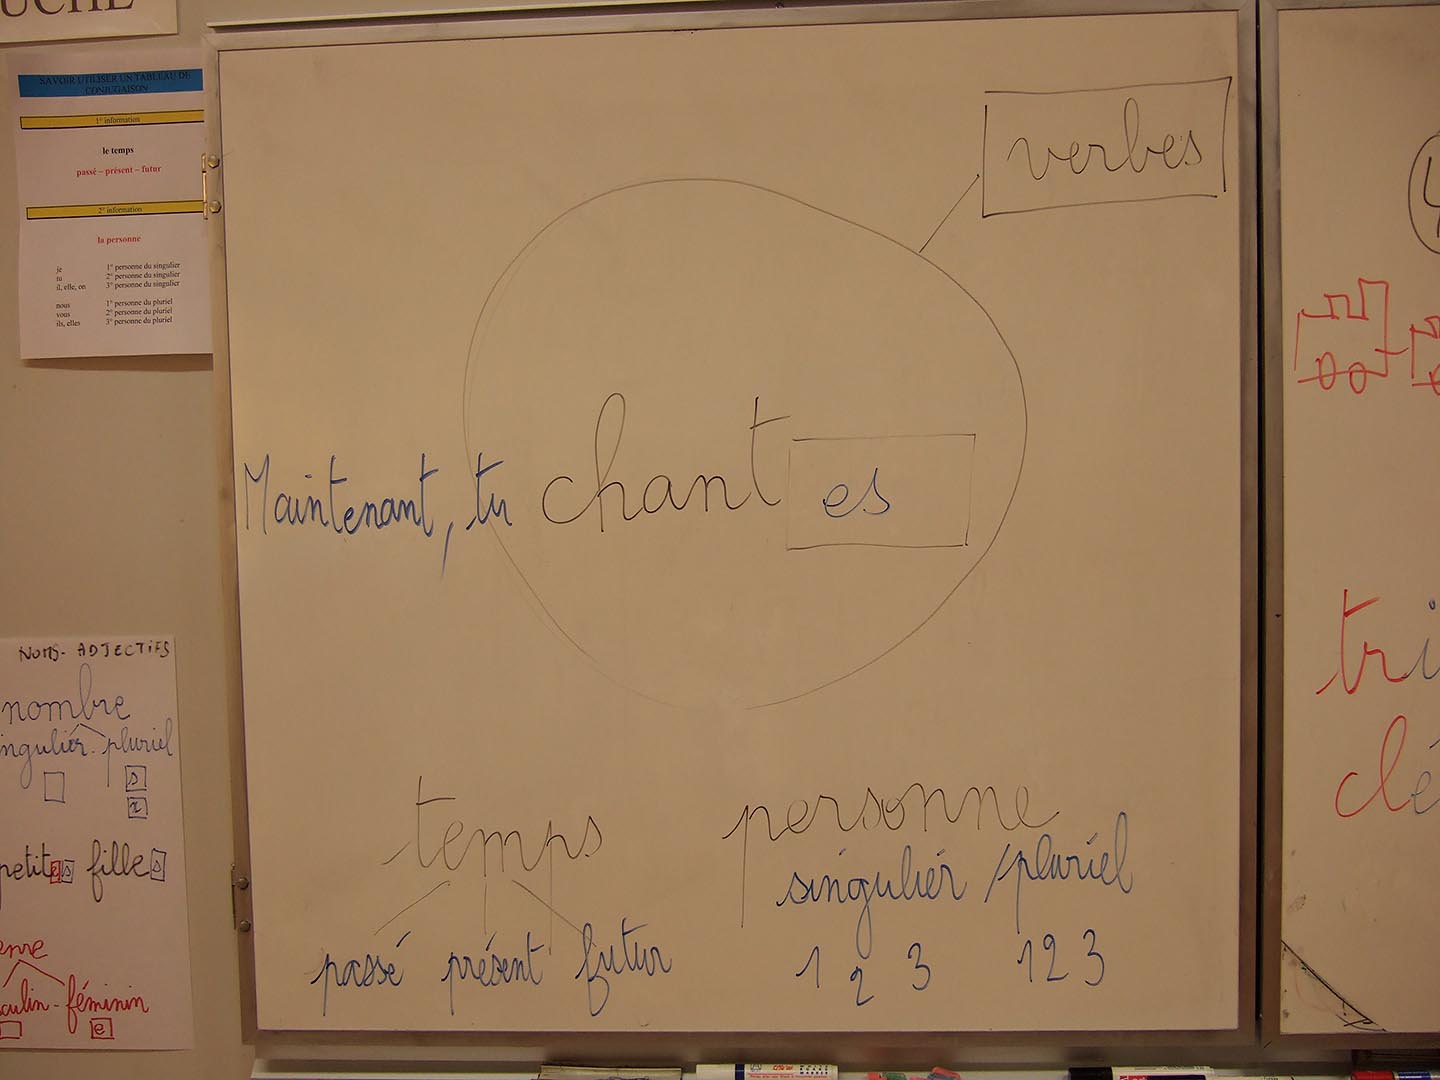 SAVOIR UTILISER UN TABLEAU DE
CONJUGAISON
1° information
le temps
passé – présent – futur
2° information
la personne
je 1° personne du singulier
tu 2° personne du singulier
il, elle, on 3° personne du singulier
nous 1° personne du pluriel
vous 2° personne du pluriel
ils, elles 3° personne du pluriel
NOMS - ADJECTIFS
nombre
ngulier - pluriel
s
x
petites filles
enre
culin - féminin
e
verbes
Maintenant, tu chantes
temps personne
singulier / pluriel
passé présent futur 1 2 3 1 2 3
tri
clé